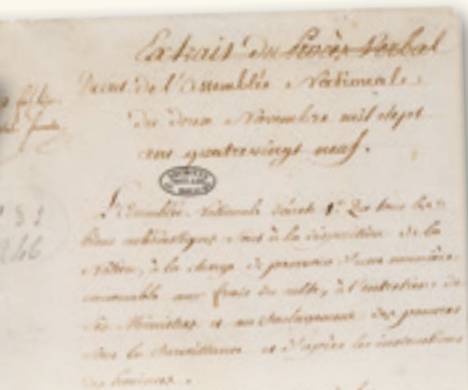 Extrait du Procès Verbal
Decret de l'Assemblée Nationale
du deux Novembre mil sept
cent quatrevingt neuf.
L'Assemblée Nationale décrete 1° Que tous les
biens ecclésiastiques sont à la disposition de la
Nation, à la charge de pourvoir d'une manière
convenable aux frais du culte, à l'entretien de
ses Ministres et au soulagement des pauvres
sous la surveillance et d'après les instructions
des Provinces.